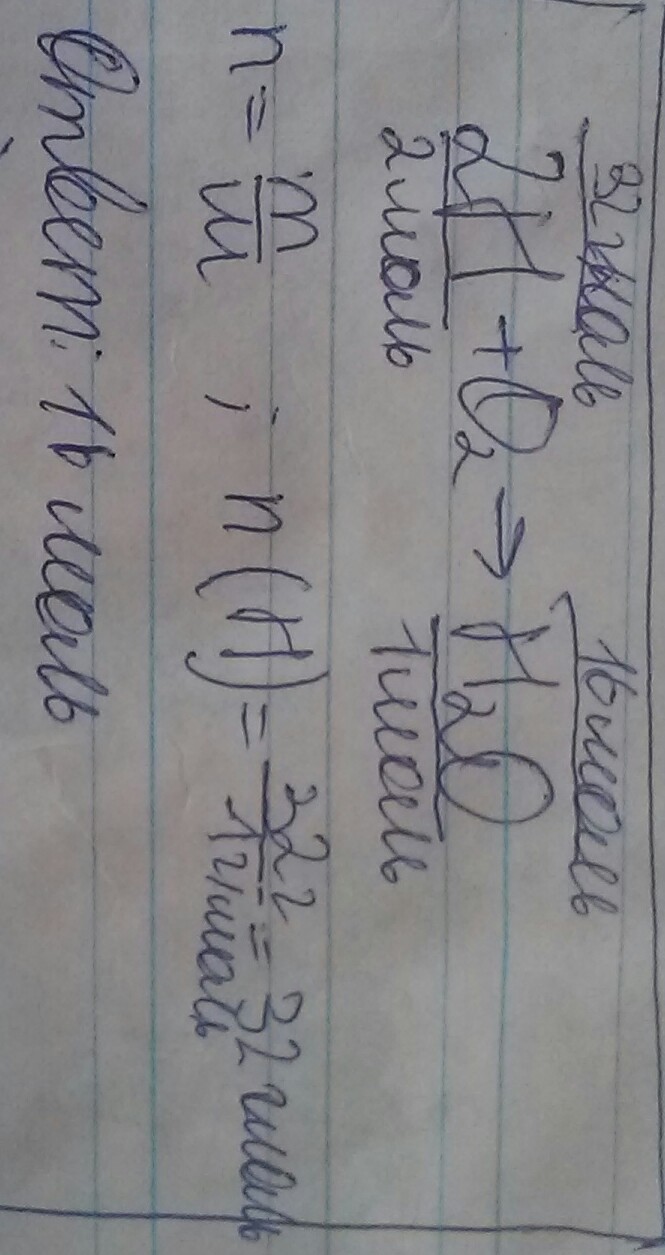 32 моль 16 моль
2H + O₂ → H₂O
2 моль 1 моль
n = m/M ; n(H) = 32 г / 1 г/моль = 32 моль
Ответ: 16 моль